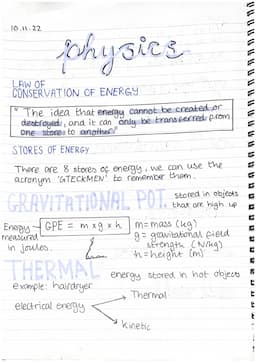 10.11.22
physics
LAW OF
CONSERVATION OF ENERGY
"The idea that energy cannot be created or
destroyed, and it can only be transferred from
one store to another"
STORES OF ENERGY
There are 8 stores of energy, we can use the
acronym 'GTECKMEN' to remember them.
GRAVITATIONAL POT. stored in objects
that are high up
Energy measured in joules.
GPE = m x g x h
m=mass (kg)
g= gravitational field
strength (N/kg)
h=height (m)
THERMAL energy stored in hot objects
example: hairdryer
electrical energy
Thermal
kinetic